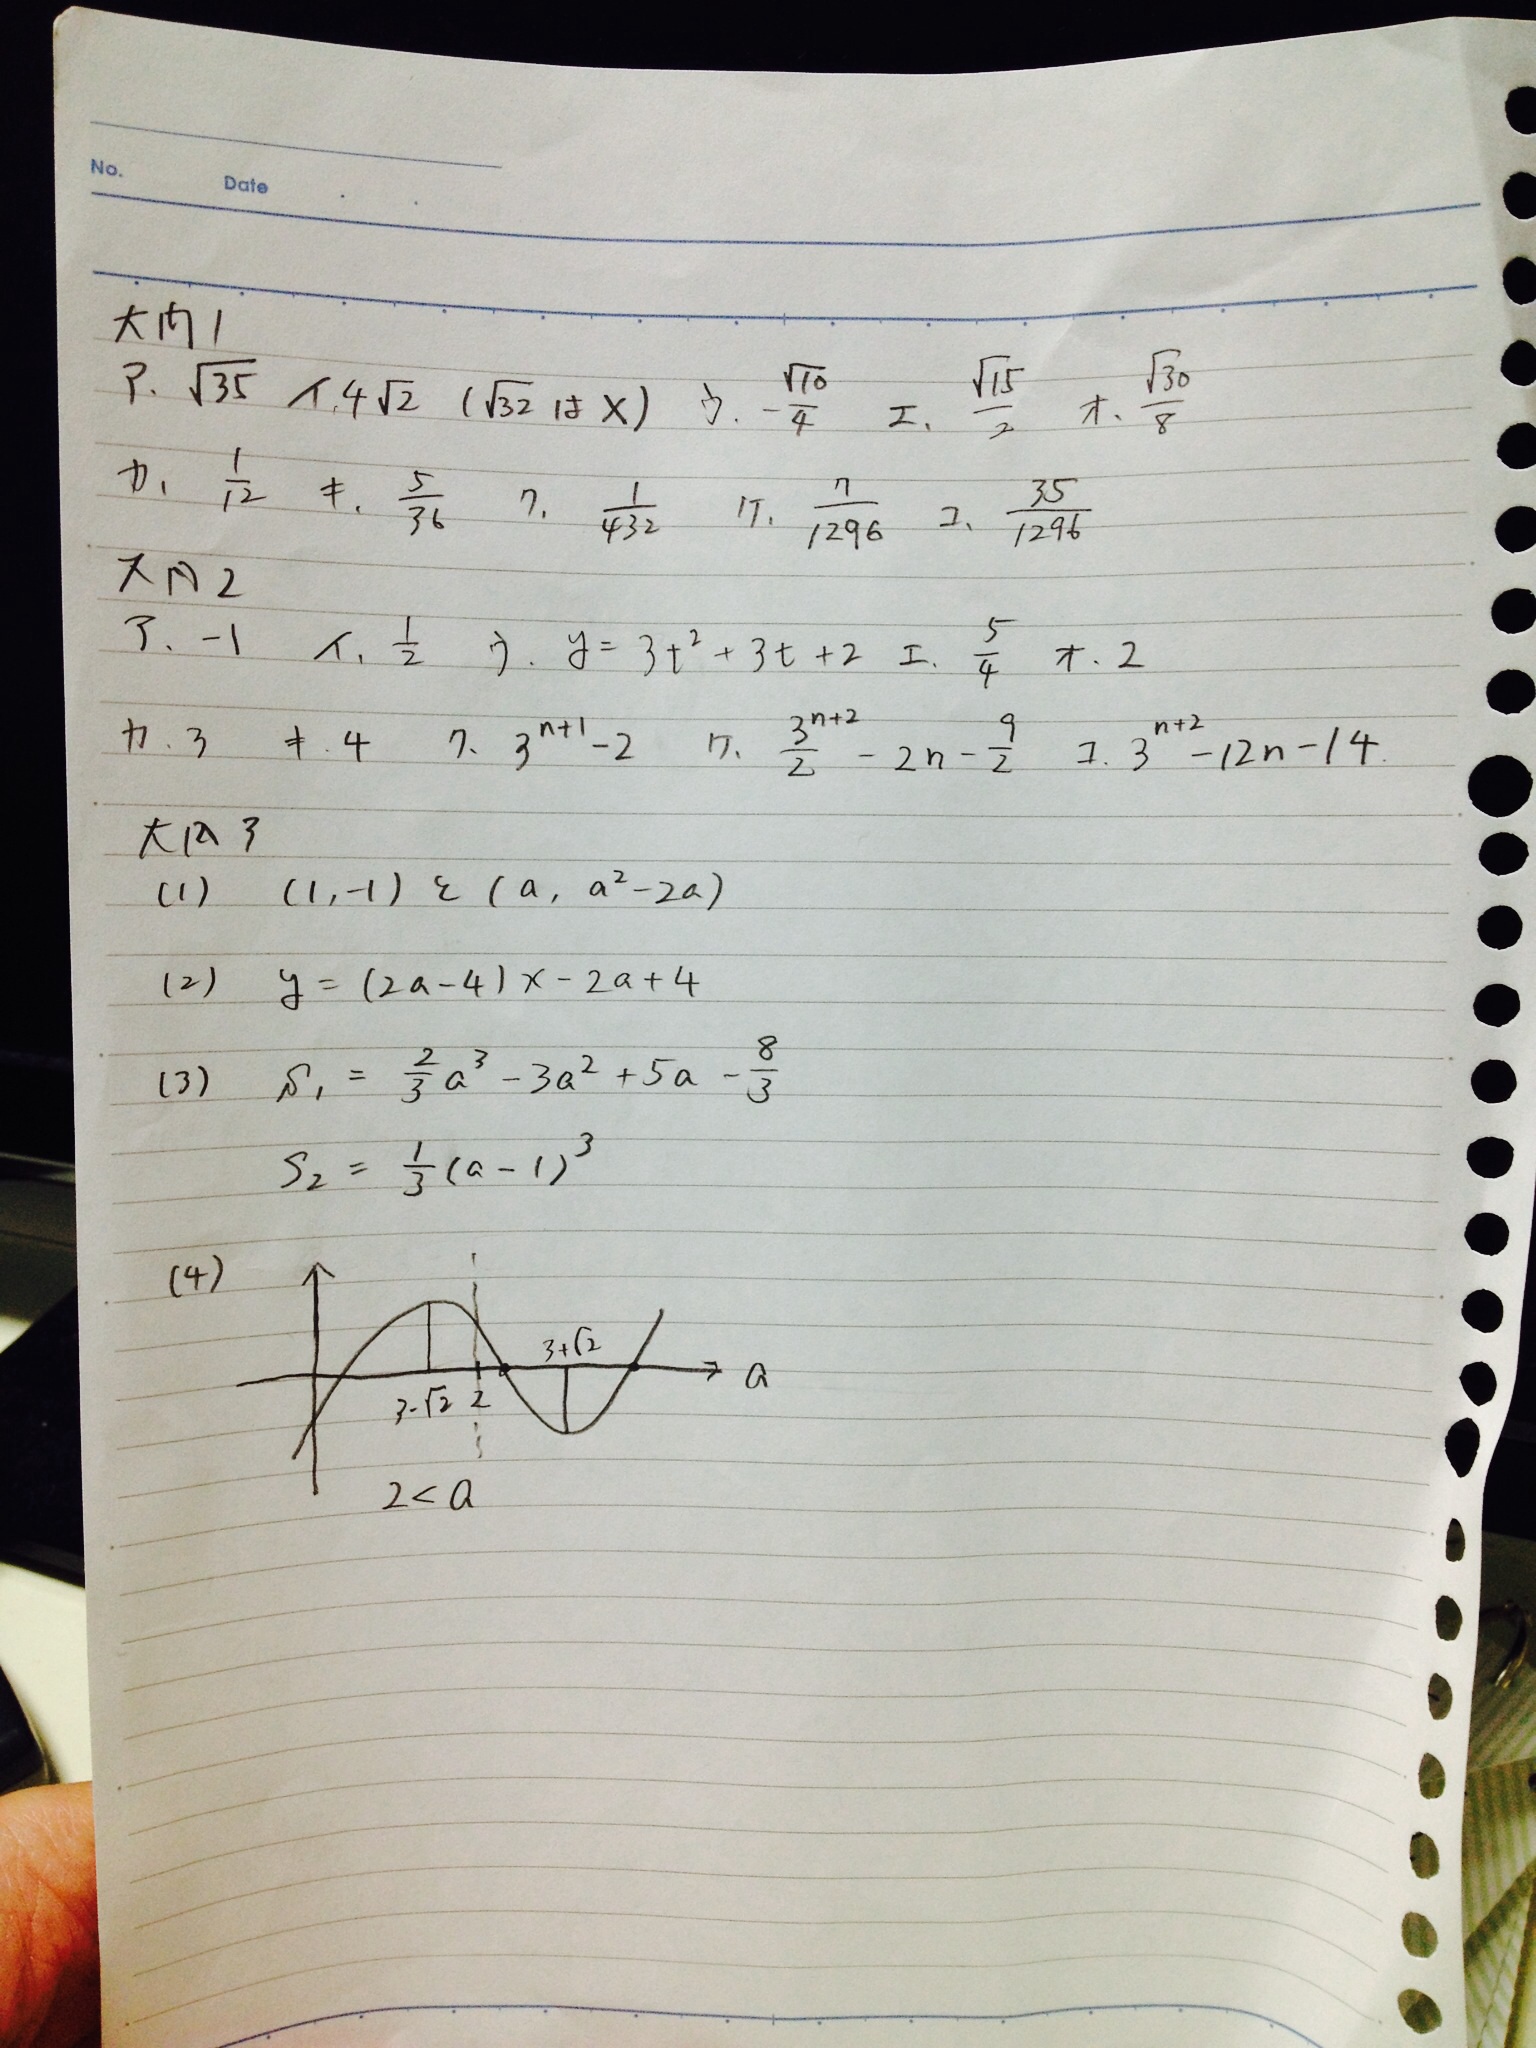 No.
Date
大問1
ア. √35 イ. 4√2 (√32は×) ウ. -√10/4 エ. √15/2 オ. √30/8
カ. 1/12 キ. 5/36 ク. 1/432 ケ. 7/1296 コ. 35/1296
大問2
ア. -1 イ. 1/2 ウ. y = 3t² + 3t + 2 エ. 5/4 オ. 2
カ. 3 キ. 4 ク. 3^(n+1) - 2 ケ. 3^(n+2)/2 - 2n - 9/2 コ. 3^(n+2) - 12n - 14.
大問3
(1) (1, -1) と (a, a² - 2a)
(2) y = (2a - 4) x - 2a + 4
(3) S₁ = 2/3 a³ - 3a² + 5a - 8/3
S₂ = 1/3 (a - 1)³
(4)
3+√2
a
3-√2 2
2 < a